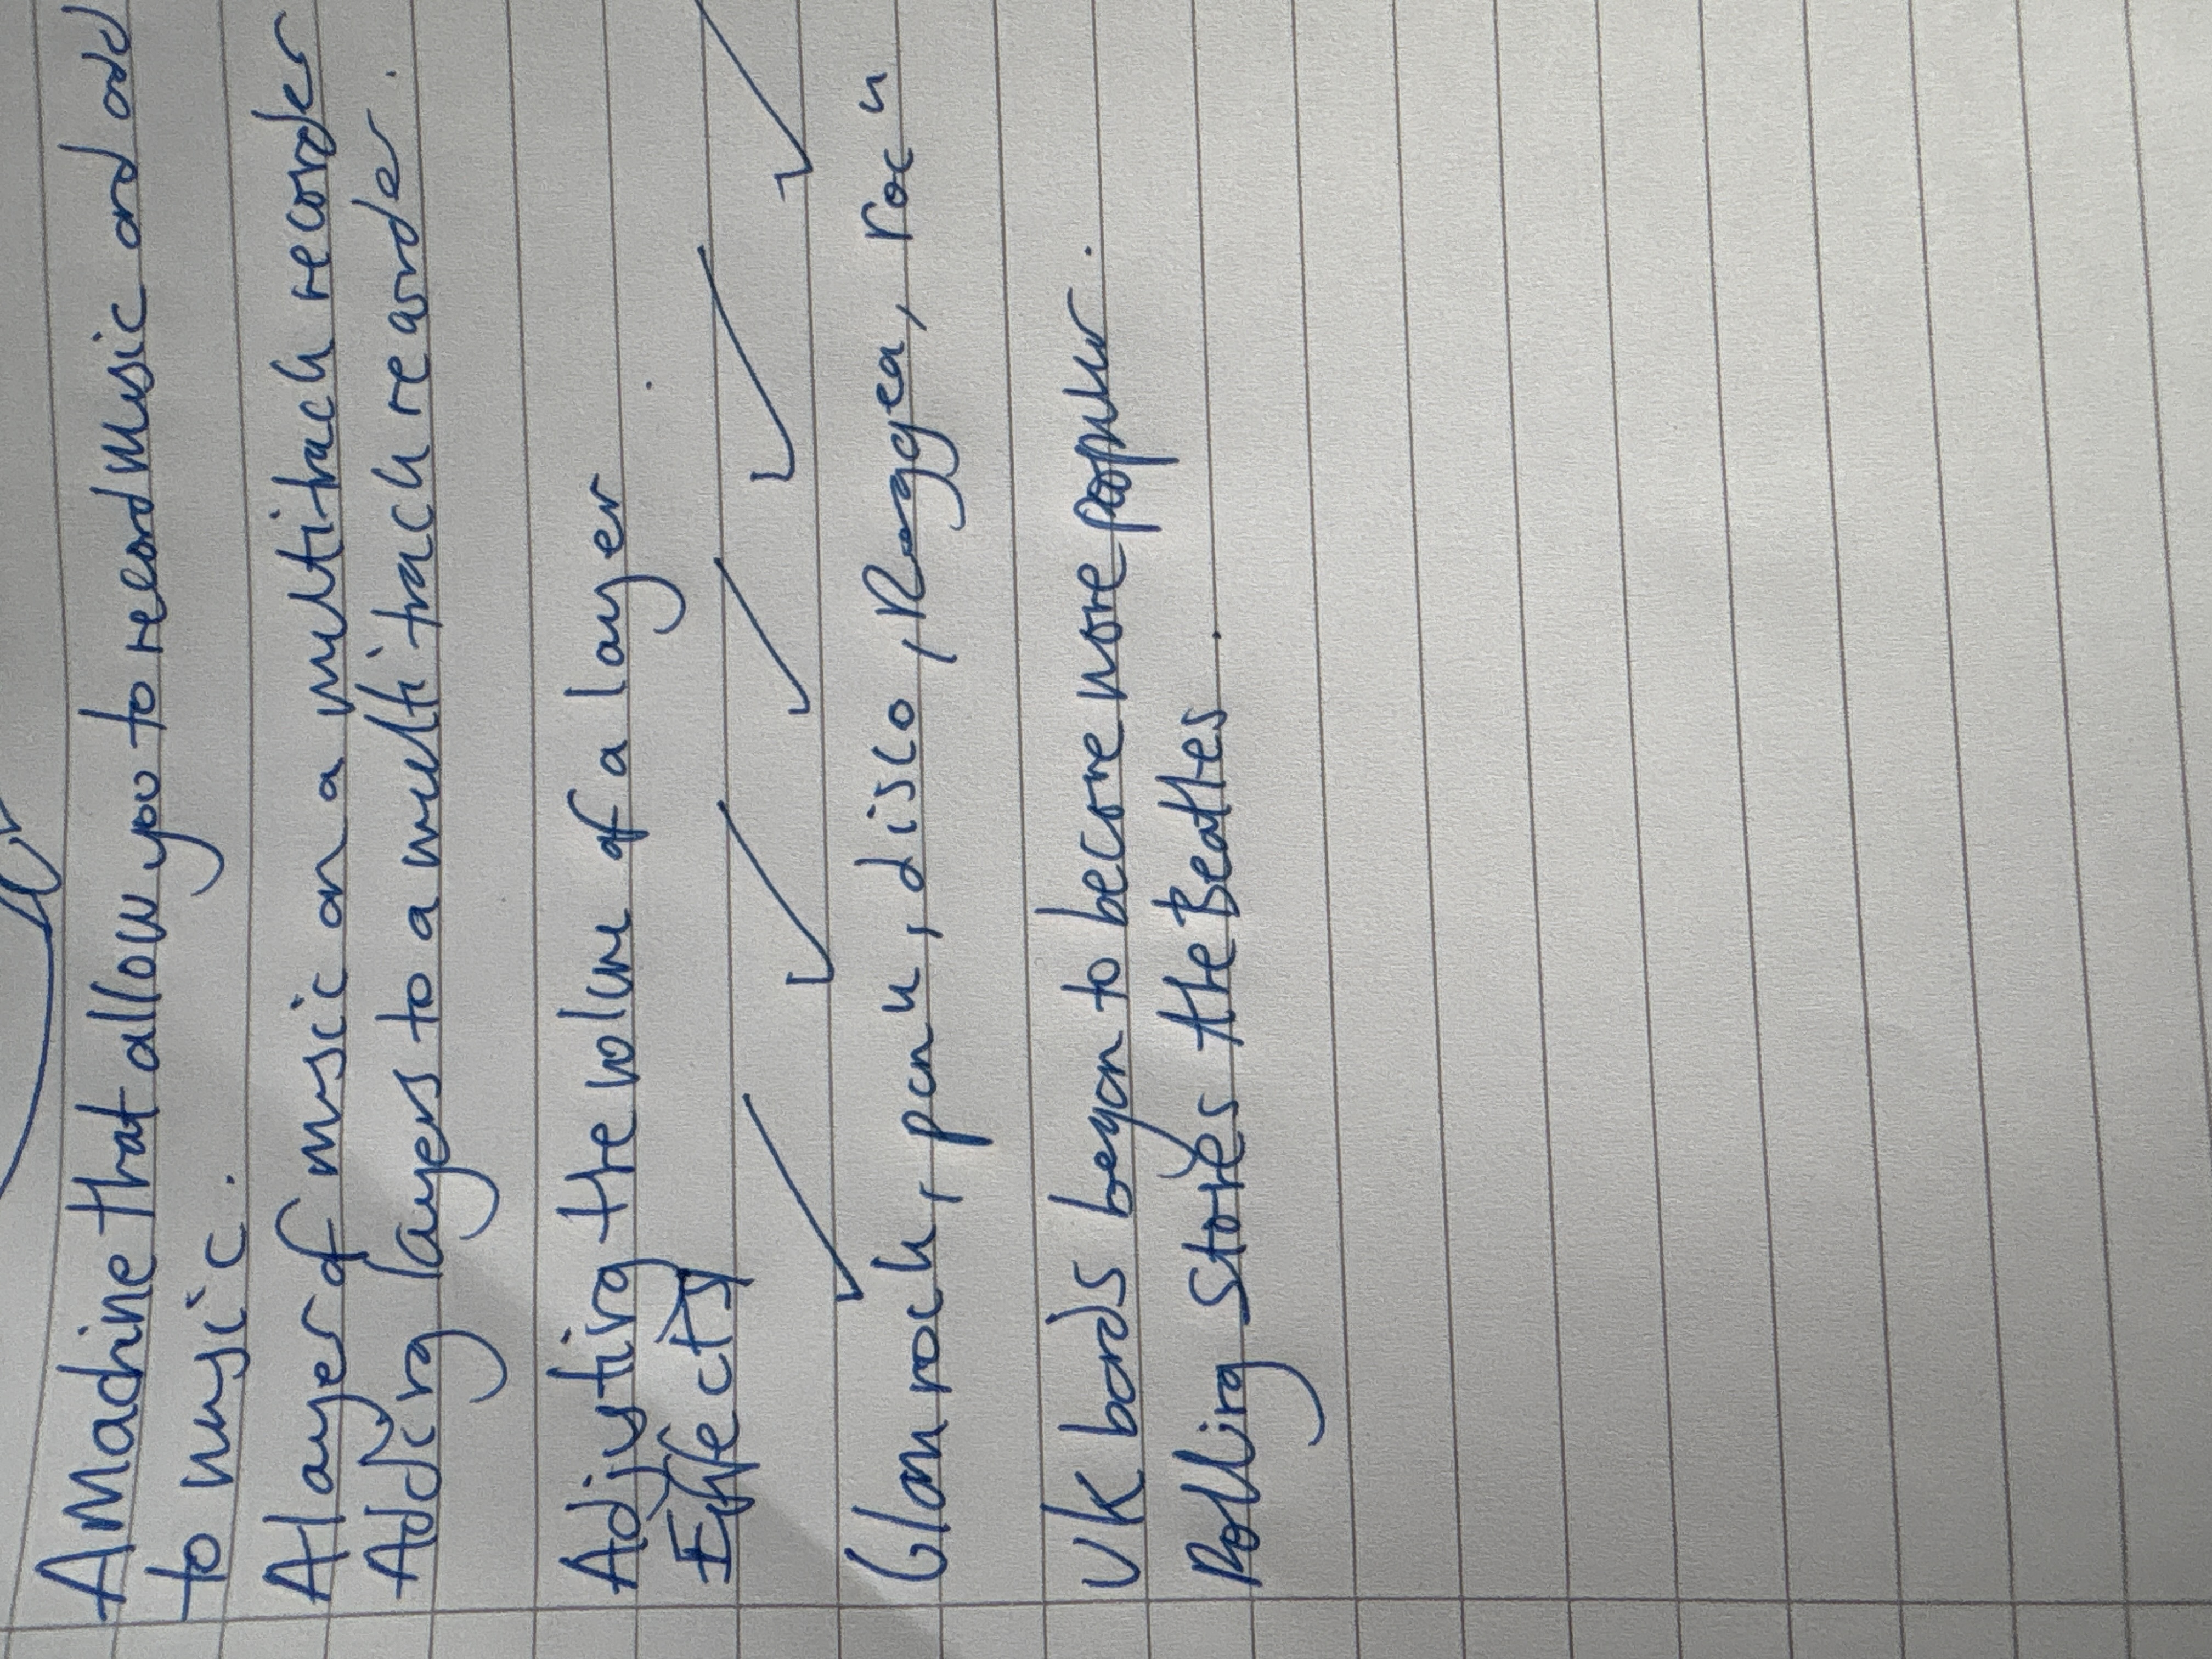 A Machine that allow you to record music and add
to music.
A layer of music on a multitrack recorder
Adding layers to a multi track recorder.
Adjusting the volum of a layer
Effects
Glam rock, punk, disco, Reggea, rock
UK bands began to become more popular.
Rolling stones the Beatles.